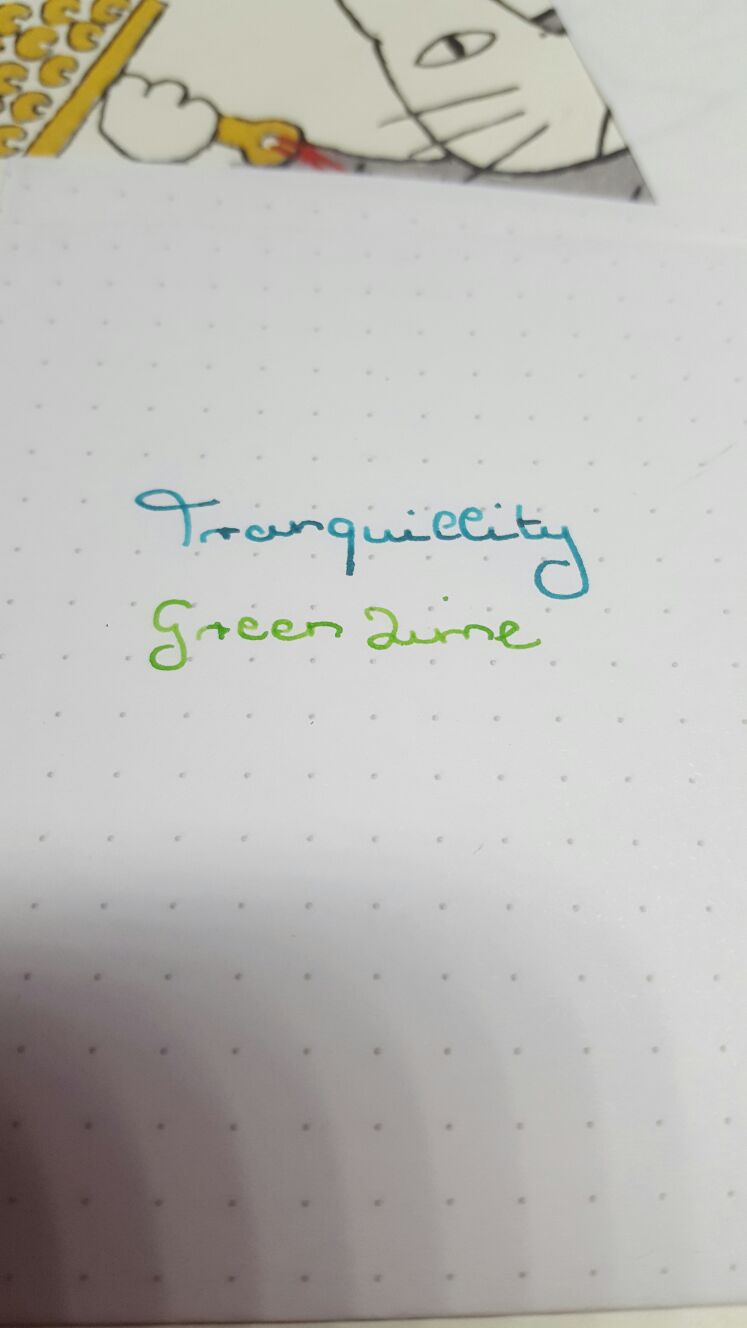 Tranquillity
Green Lime